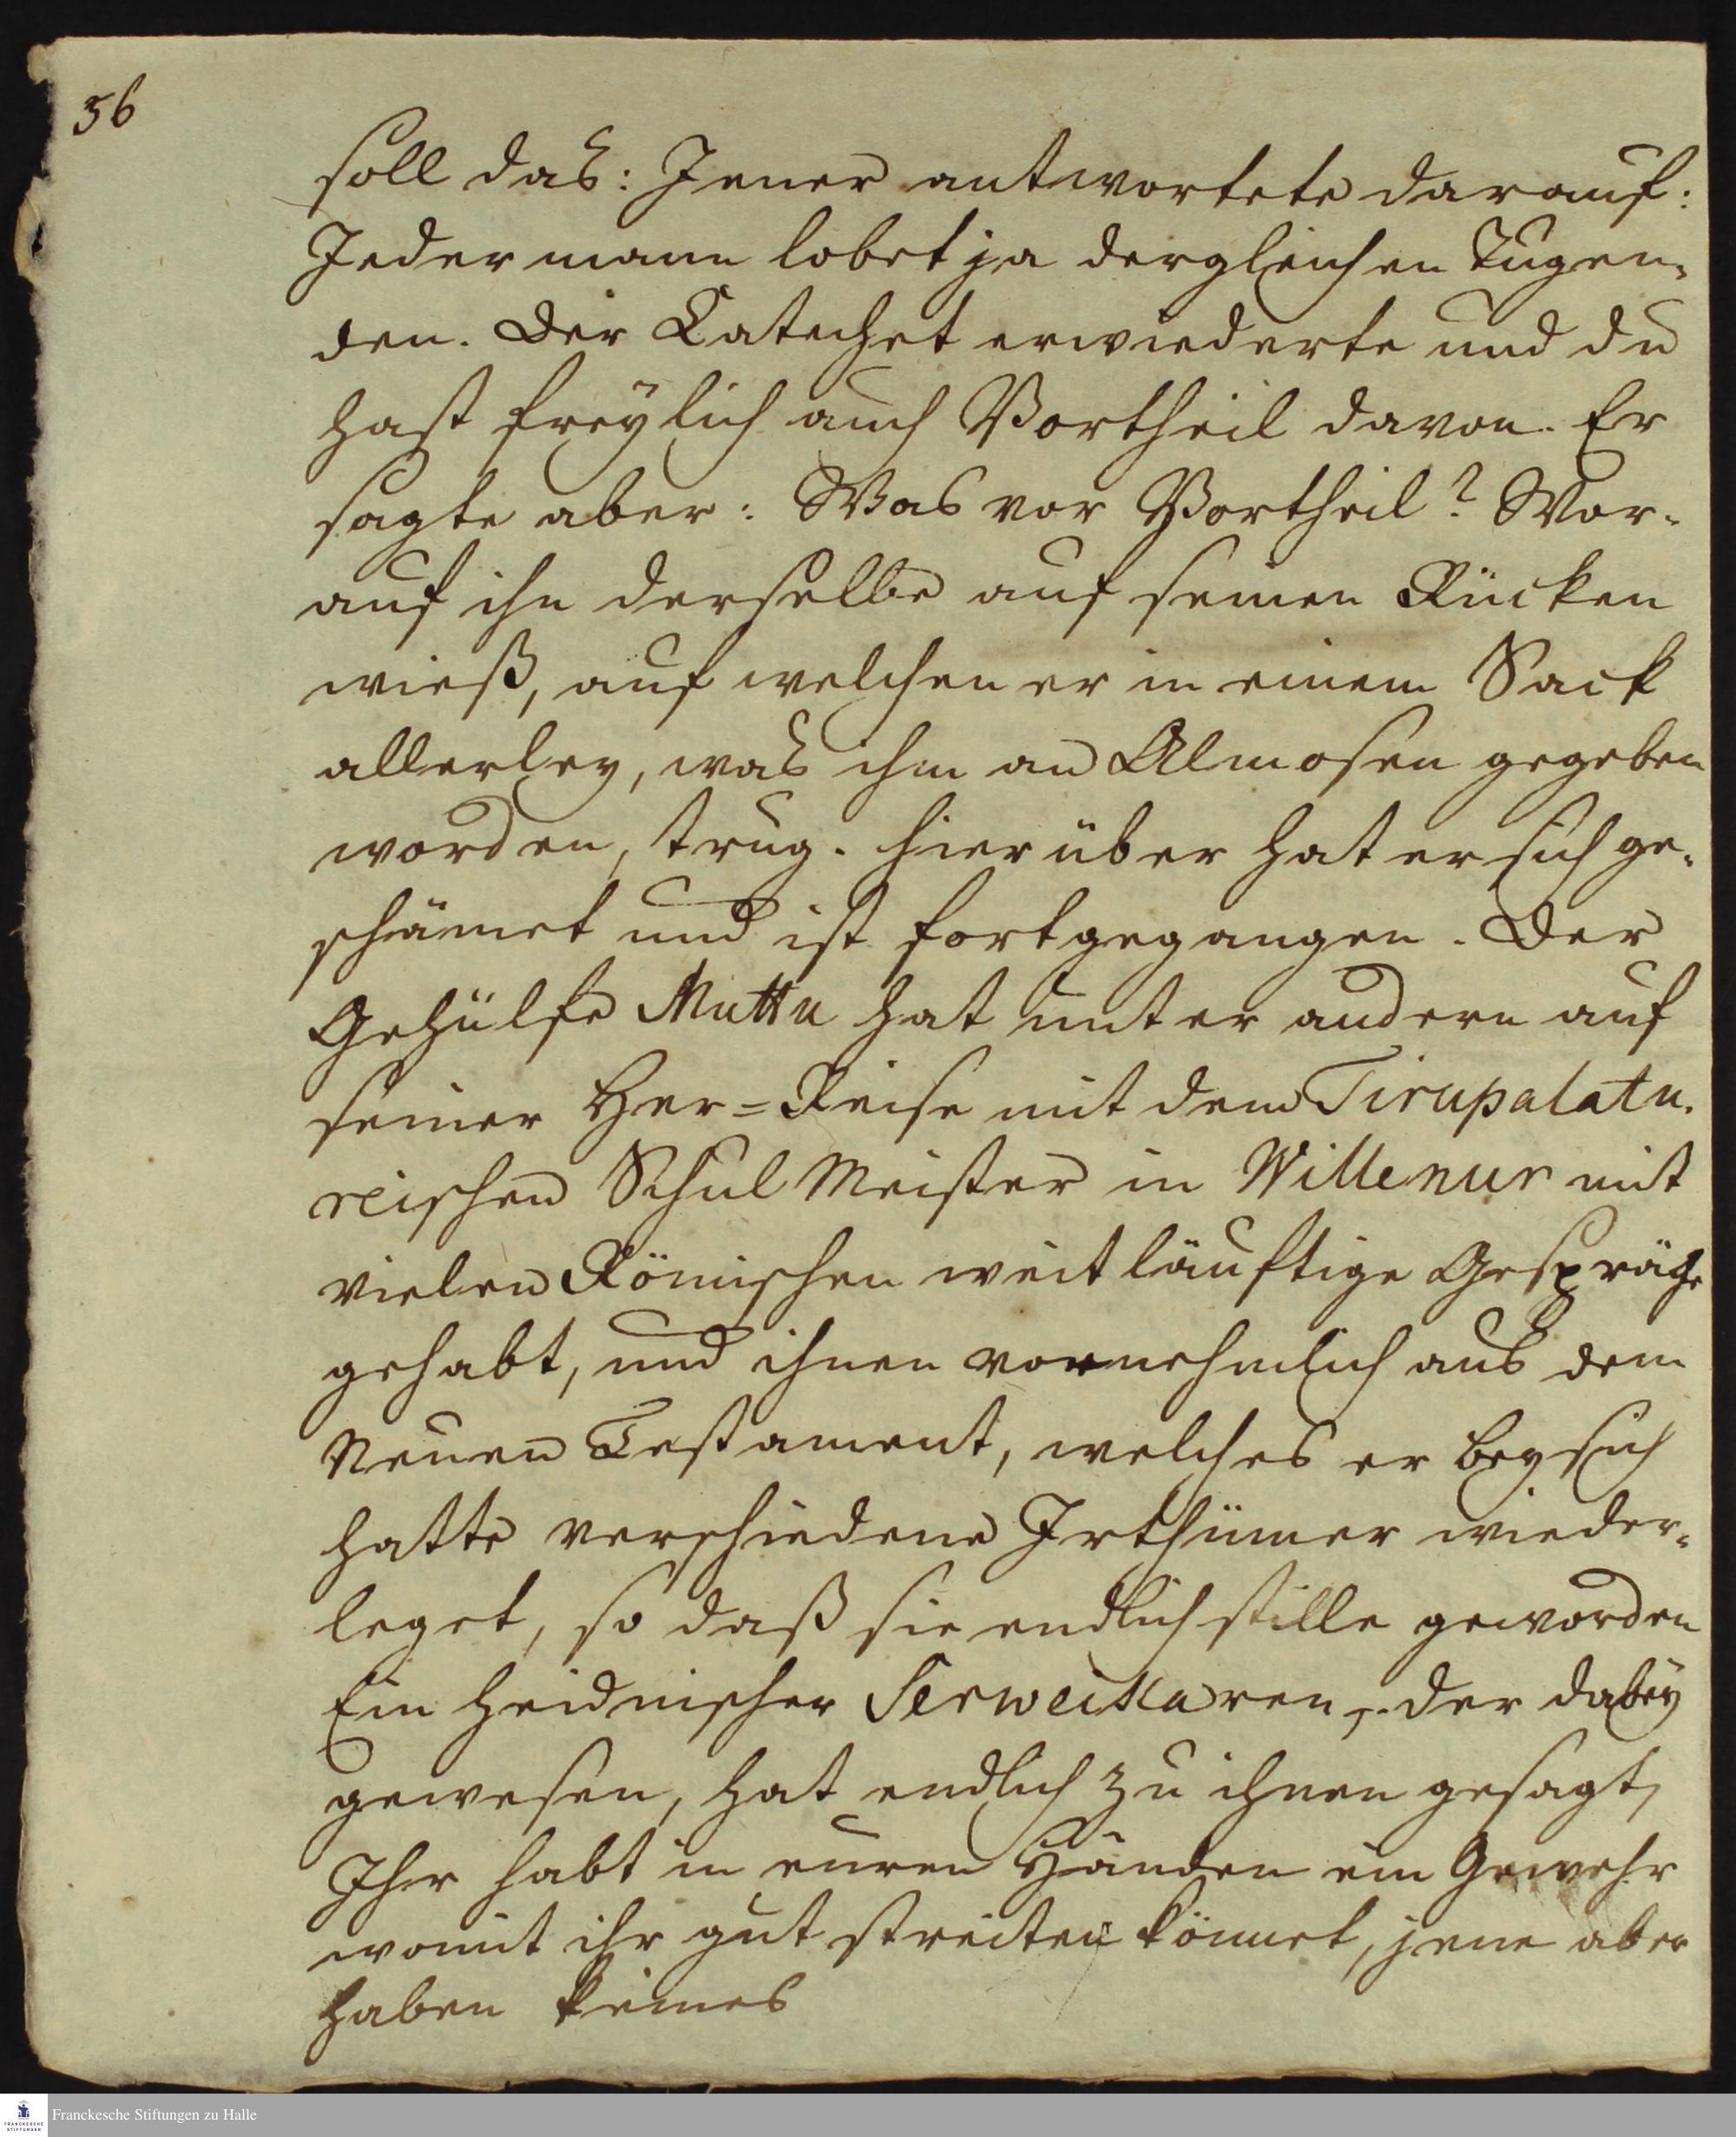 56
soll das: Jener antwortete darauf:
Jedermann lobet ja dergleichen Tugen-
den. Der Catechet erwiederte und du
hast freÿlich auch Vortheil davon. Er
sagte aber: Was vor Vortheil? Wor-
auf ihn derselbe auf seinen Rücken
wieß, auf welchen er in einem Sack
allerley, was ihm an Almosen gegeben
worden, trug. Hierüber hat er sich ge-
schämet und ist fortgegangen. Der
Gehülfe Muttu hat unter andern auf
seiner Her=Reise mit dem Tirupalatu-
reischen Schul Meister in Willenur mit
vielen Römischen weitläuftige Gespräche
gehabt, und ihnen vornehmlich aus dem
Neuen Testament, welches er bey sich
hatte verschiedene Irthümer wieder-
leget, so daß sie endlich stille geworden
Ein heidnischer Serweikaren, der dabeÿ
gewesen, hat endlich zu ihnen gesagt,
Ihr habt in euren Händen ein Gewehr
womit ihr gut streiten könnet, jene aber
haben keines
Franckesche Stiftungen zu Halle
FRANCKESCHE
STIFTUNGEN